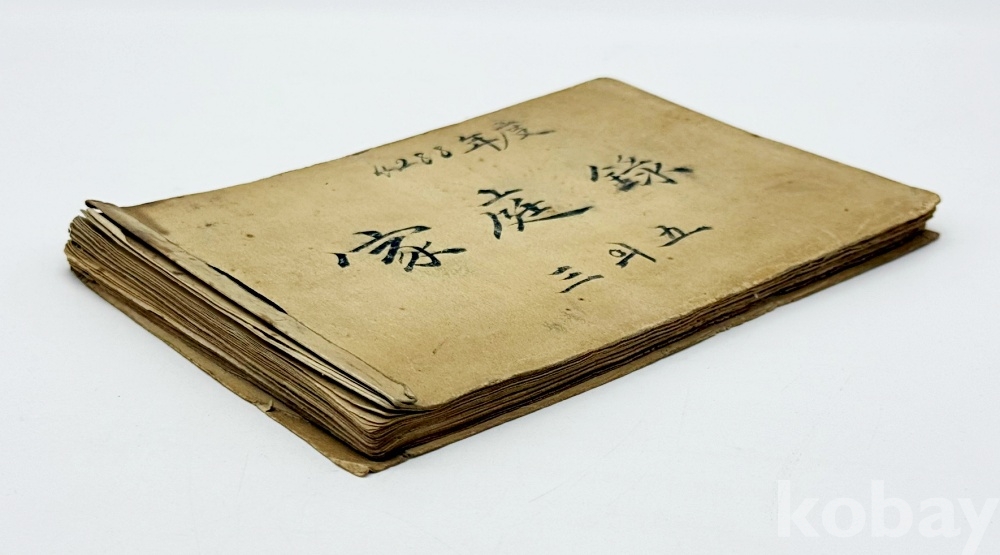 4288年度
家庭録
三의五
kobay